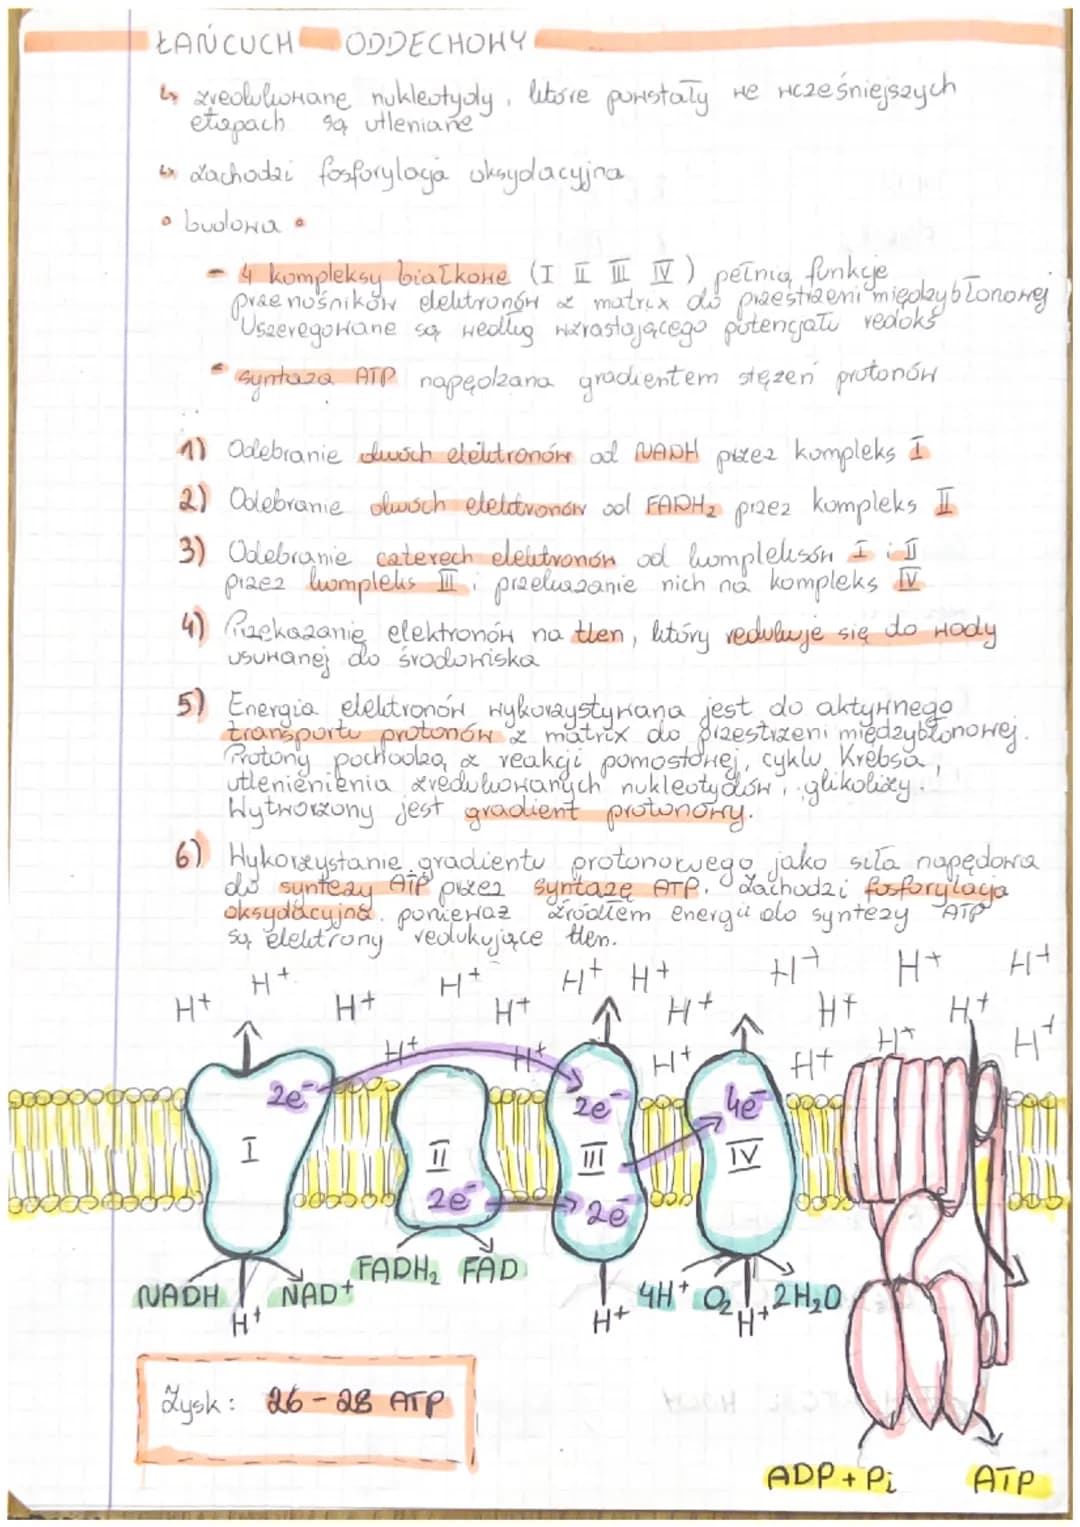 ŁAŃCUCH ODDECHOWY
↳ zredukowane nukleotydy, które powstały we wcześniejszych
etapach są utleniane
↳ zachodzi fosforylacja oksydacyjna
• budowa •
- 4 kompleksy białkowe (I II III IV) pełnią funkcje
przenośników elektronów z matrix do przestrzeni międzybłonowej
Uszeregowane są według wzrastającego potencjału redoks
- syntaza ATP napędzana gradientem stężeń protonów
1) Odebranie dwóch elektronów od NADH przez kompleks I
2) Odebranie dwóch elektronów od FADH₂ przez kompleks II
3) Odebranie czterech elektronów od kompleksów I i II
przez kompleks III i przekazanie nich na kompleks IV
4) Przekazanie elektronów na tlen, który redukuje się do wody
usuwanej do środowiska
5) Energia elektronów wykorzystywana jest do aktywnego
transportu protonów z matrix do przestrzeni międzybłonowej.
Protony pochodzą z reakcji pomostowej, cyklu Krebsa,
utlenienienia zredukowanych nukleotydów i glikolizy.
Wytworzony jest gradient protonowy.
6) Wykorzystanie gradientu protonowego jako siła napędowa
do syntezy ATP przez syntazę ATP. Zachodzi fosforylacja
oksydacyjna. ponieważ źródłem energii do syntezy ATP
są elektrony redukujące tlen.
H⁺ H⁺ H⁺ H⁺ H⁺ H⁺ H⁺ H⁺
H⁺ H⁺ H⁺ H⁺ H⁺ H⁺
H⁺ H⁺ H⁺ H⁺ H⁺ H⁺
2e⁻ 2e⁻ 4e⁻
I II III IV
2e⁻ 2e⁻
FADH₂ FAD
NADH NAD⁺ 4H⁺ O₂ 2H₂O
H⁺ H⁺ H⁺
Zysk: 26-28 ATP
ADP + Pi ATP